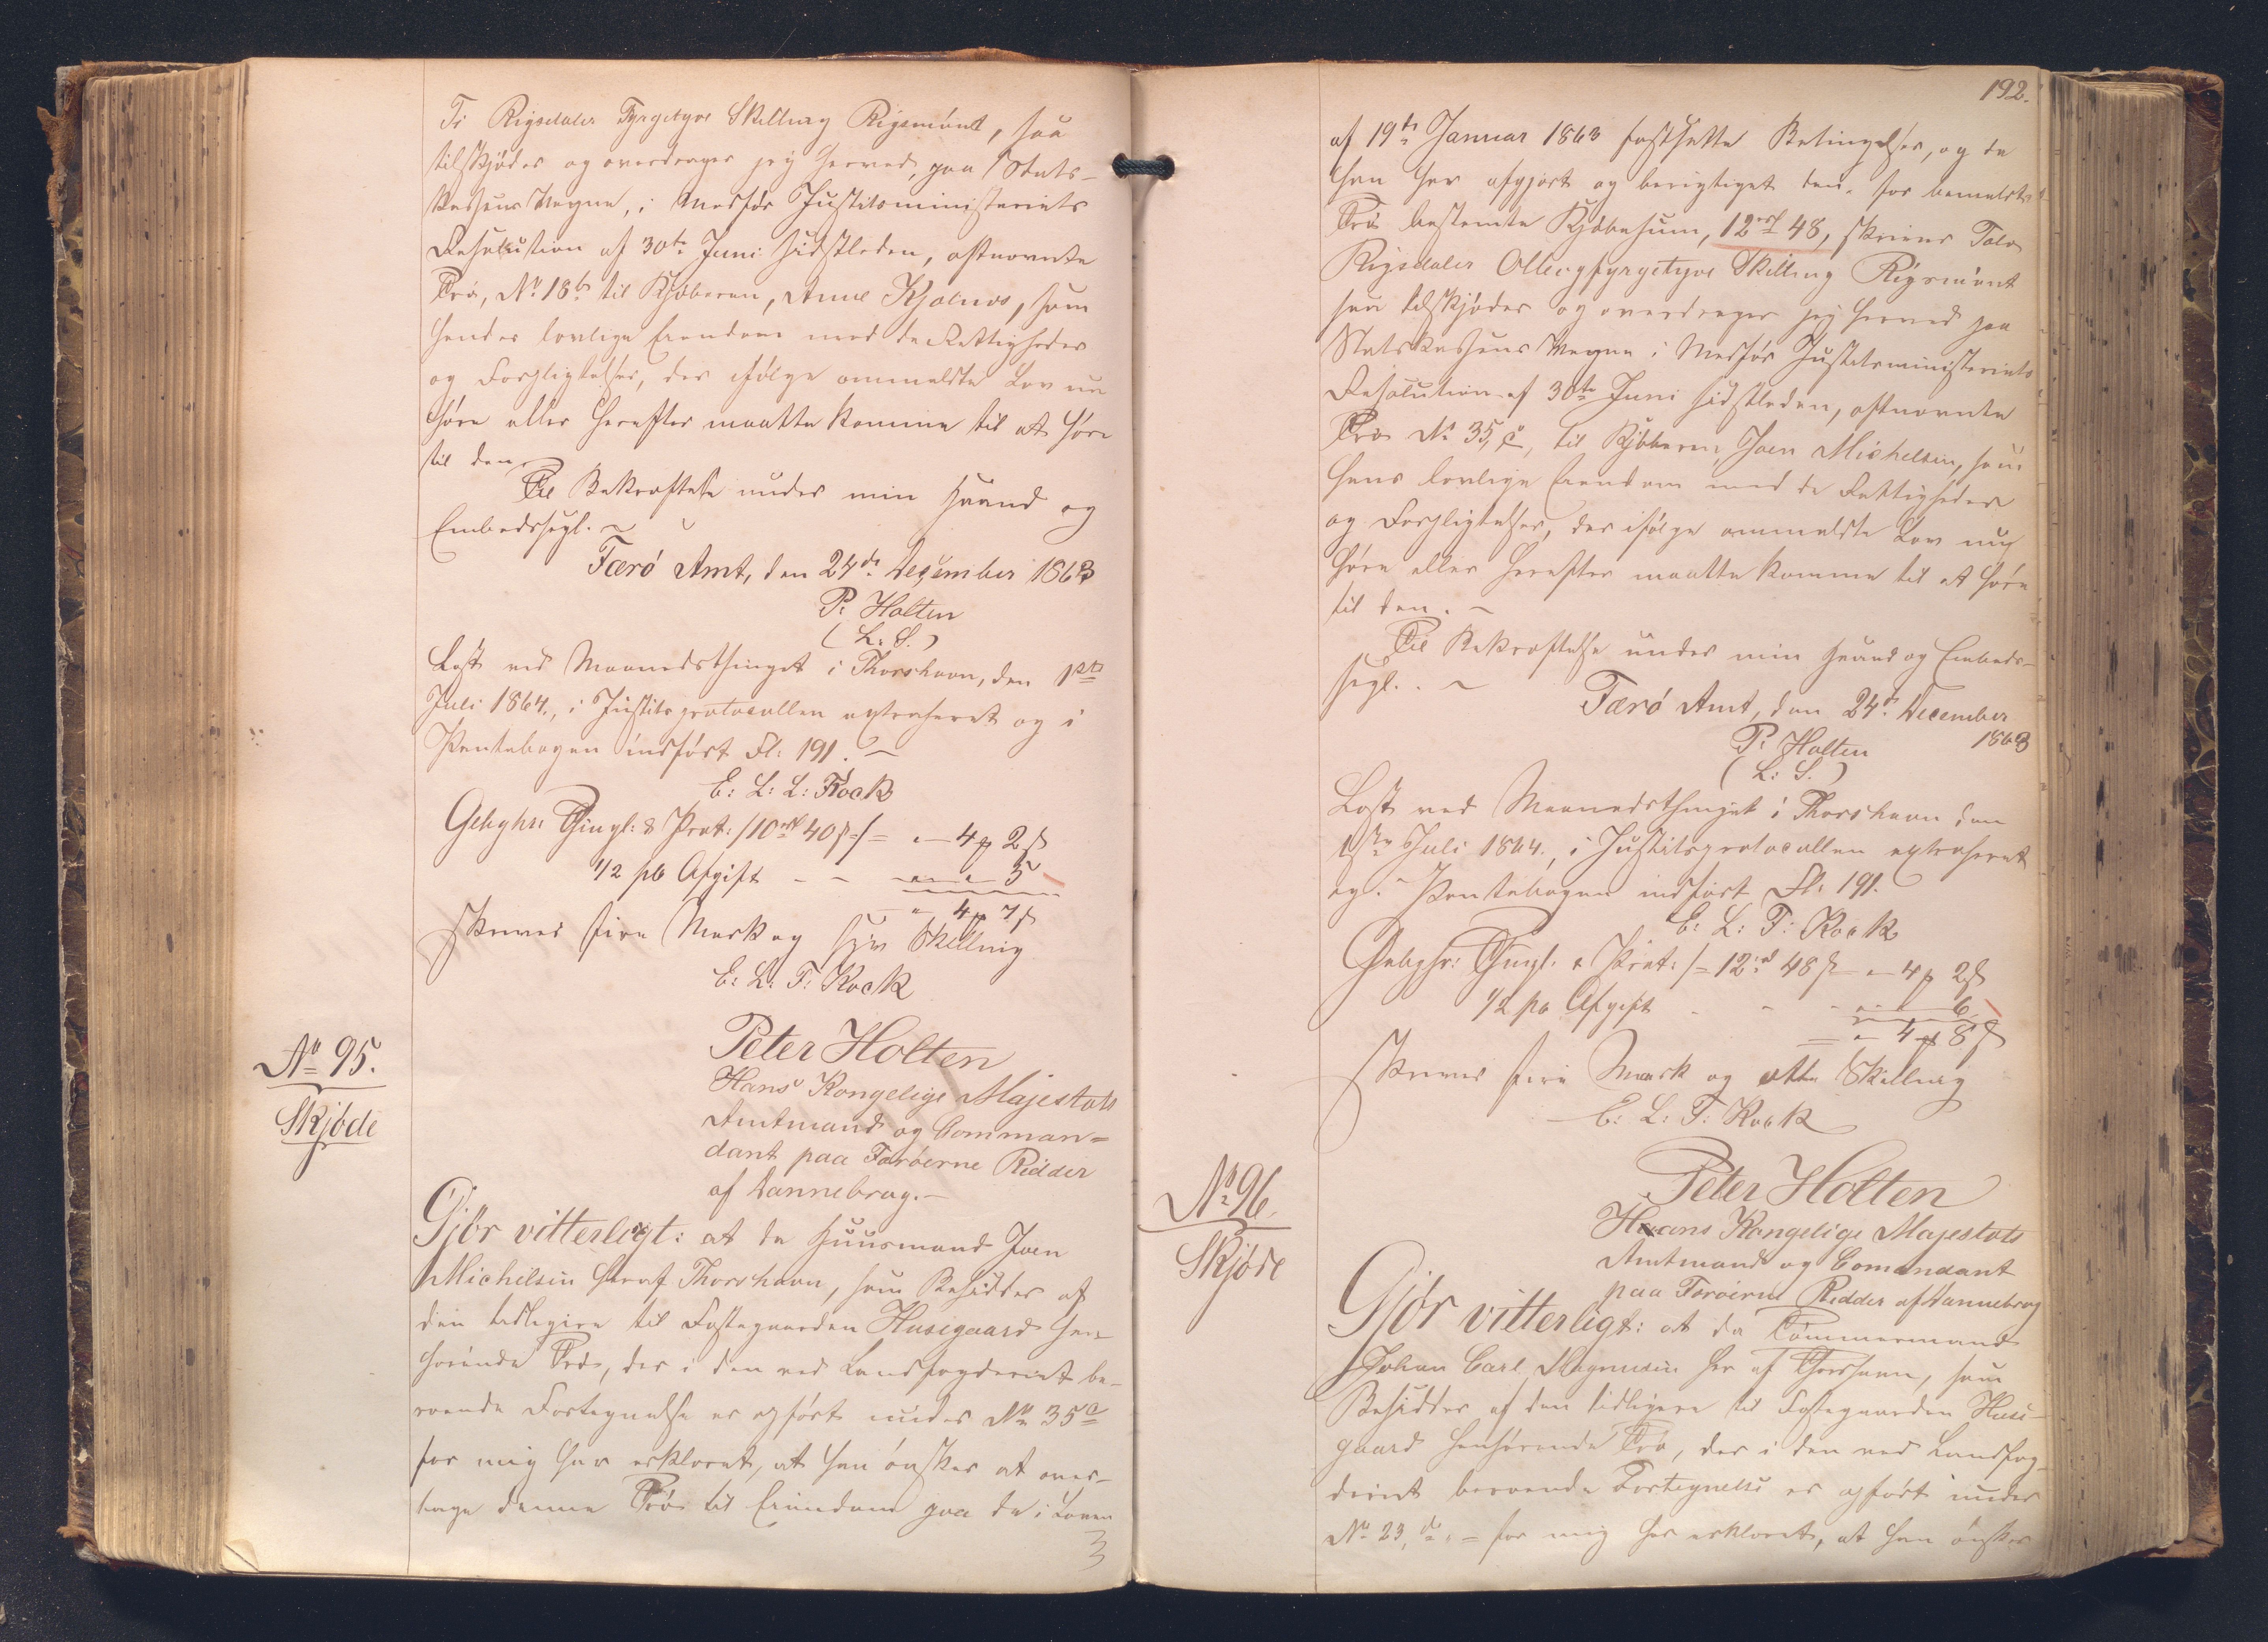 Ti Rigsdaler Fyrgetyve Skilling Rigsmönt, saa
tilskjøder og overdrager jeg herved, paa Stats-
kassens Vegne, i Medfør Justitsministeriets
Resolution af 30te Juni sidstleden, oftnævnte
Trø, No 18b til Kjøberen, Anne Kjølnæs, som
hendes lovlige Eiendom med de Rettigheder
og Forpligtelser, der ifølge ommeldte Lov nu
høre eller herefter maatte komme til at høre
til den.
Til Bekræftelse under min Haand og
Embedssegl. ~
Færö Amt, den 24de December 1863
P. Holten
(L. S.)
Læst ved Maanedsthinget i Thorshavn, den 1ste
Juli 1864., i Justitsprotocollen extraheret og i
Pantebogen indført Fl: 191. ~
E: L: T: Kock
Gebyhr: Thingl: & Prot: /10rd 40ß/ = " - 4 # 2 ß
1/2 pCt Afgift - - " - " - 5
" - 4 # 7 ß
skriver fire Mark og syv Skilling
E: L: T: Kock
No 95.
Skjöde
Peter Holten
Hans Kongelige Majestæts
Amtmand og Comman=
dant paa Færöerne Ridder
af Dannebrog. -
Gjör vitterligt: at da Huusmand Joen
Michelsen heraf Thorshavn, som Besidder af
den tidligere til Fæstegaarden Husegaard hen-
hørende Trø, der i den ved Landfogderiet be-
roende Fortegnelse er opført under No 35c
for mig har erklæret, at han ønsker at over-
tage denne Trø til Eiendom paa de i Loven
192.
af 19de Januar 1863 fastsatte Betingelser, og da
han har afgjort og berigtiget den for bemeldte
Trø bestemte Kjøbesum, 12rd 48, skriver Tolv
Rigsdaler Otteogfyrgetyve Skilling Rigsmönt
saa tilskjøder og overdrager jeg herved paa
Statskassens Vegne i Medfør Justitsministeriets
Resolution af 30te Juni sidstleden, oftnævnte
Trø No 35, c, til Kjøberen, Joen Michelsen, som
hans lovlige Eiendom med de Rettigheder
og Forpligtelser, der ifølge ommeldte Lov nu
høre eller herefter maatte komme til at høre
til den. ~
Til Bekræftelse under min Haand og Embeds-
segl. ~
Færö Amt, den 24de December
1863
P. Holten
(L: S.)
Læst ved Maanedsthinget i Thorshavn den
1ste Juli 1864., i Justitsprotocollen extraheret
og i Pantebogen indført Fl: 191.
E: L: T: Kock
Gebyhr: Thingl: & Prot: /= 12rd 48 ß = " - 4 # 2 ß
1/2 pCt Afgift - - - " - " - 6
" - 4 # 8 ß
skriver fire Mark og otte Skilling
E: L: T: Kock
No 96
Skjöde
Peter Holten
Hans Kongelige Majestæts
Amtmand og Comandant
paa Færöerne Ridder af Dannebrog
Gjör vitterligt: at da Tömmermand
Johan Carl Magnusen her af Thorshavn, som
Besidder af den tidligere til Fæstegaarden Huse-
gaard henhørende Trø, der i den ved Landfog-
deriet beroende Fortegnelse er opført under
No 23, = for mig har erklæret, at han ønsker